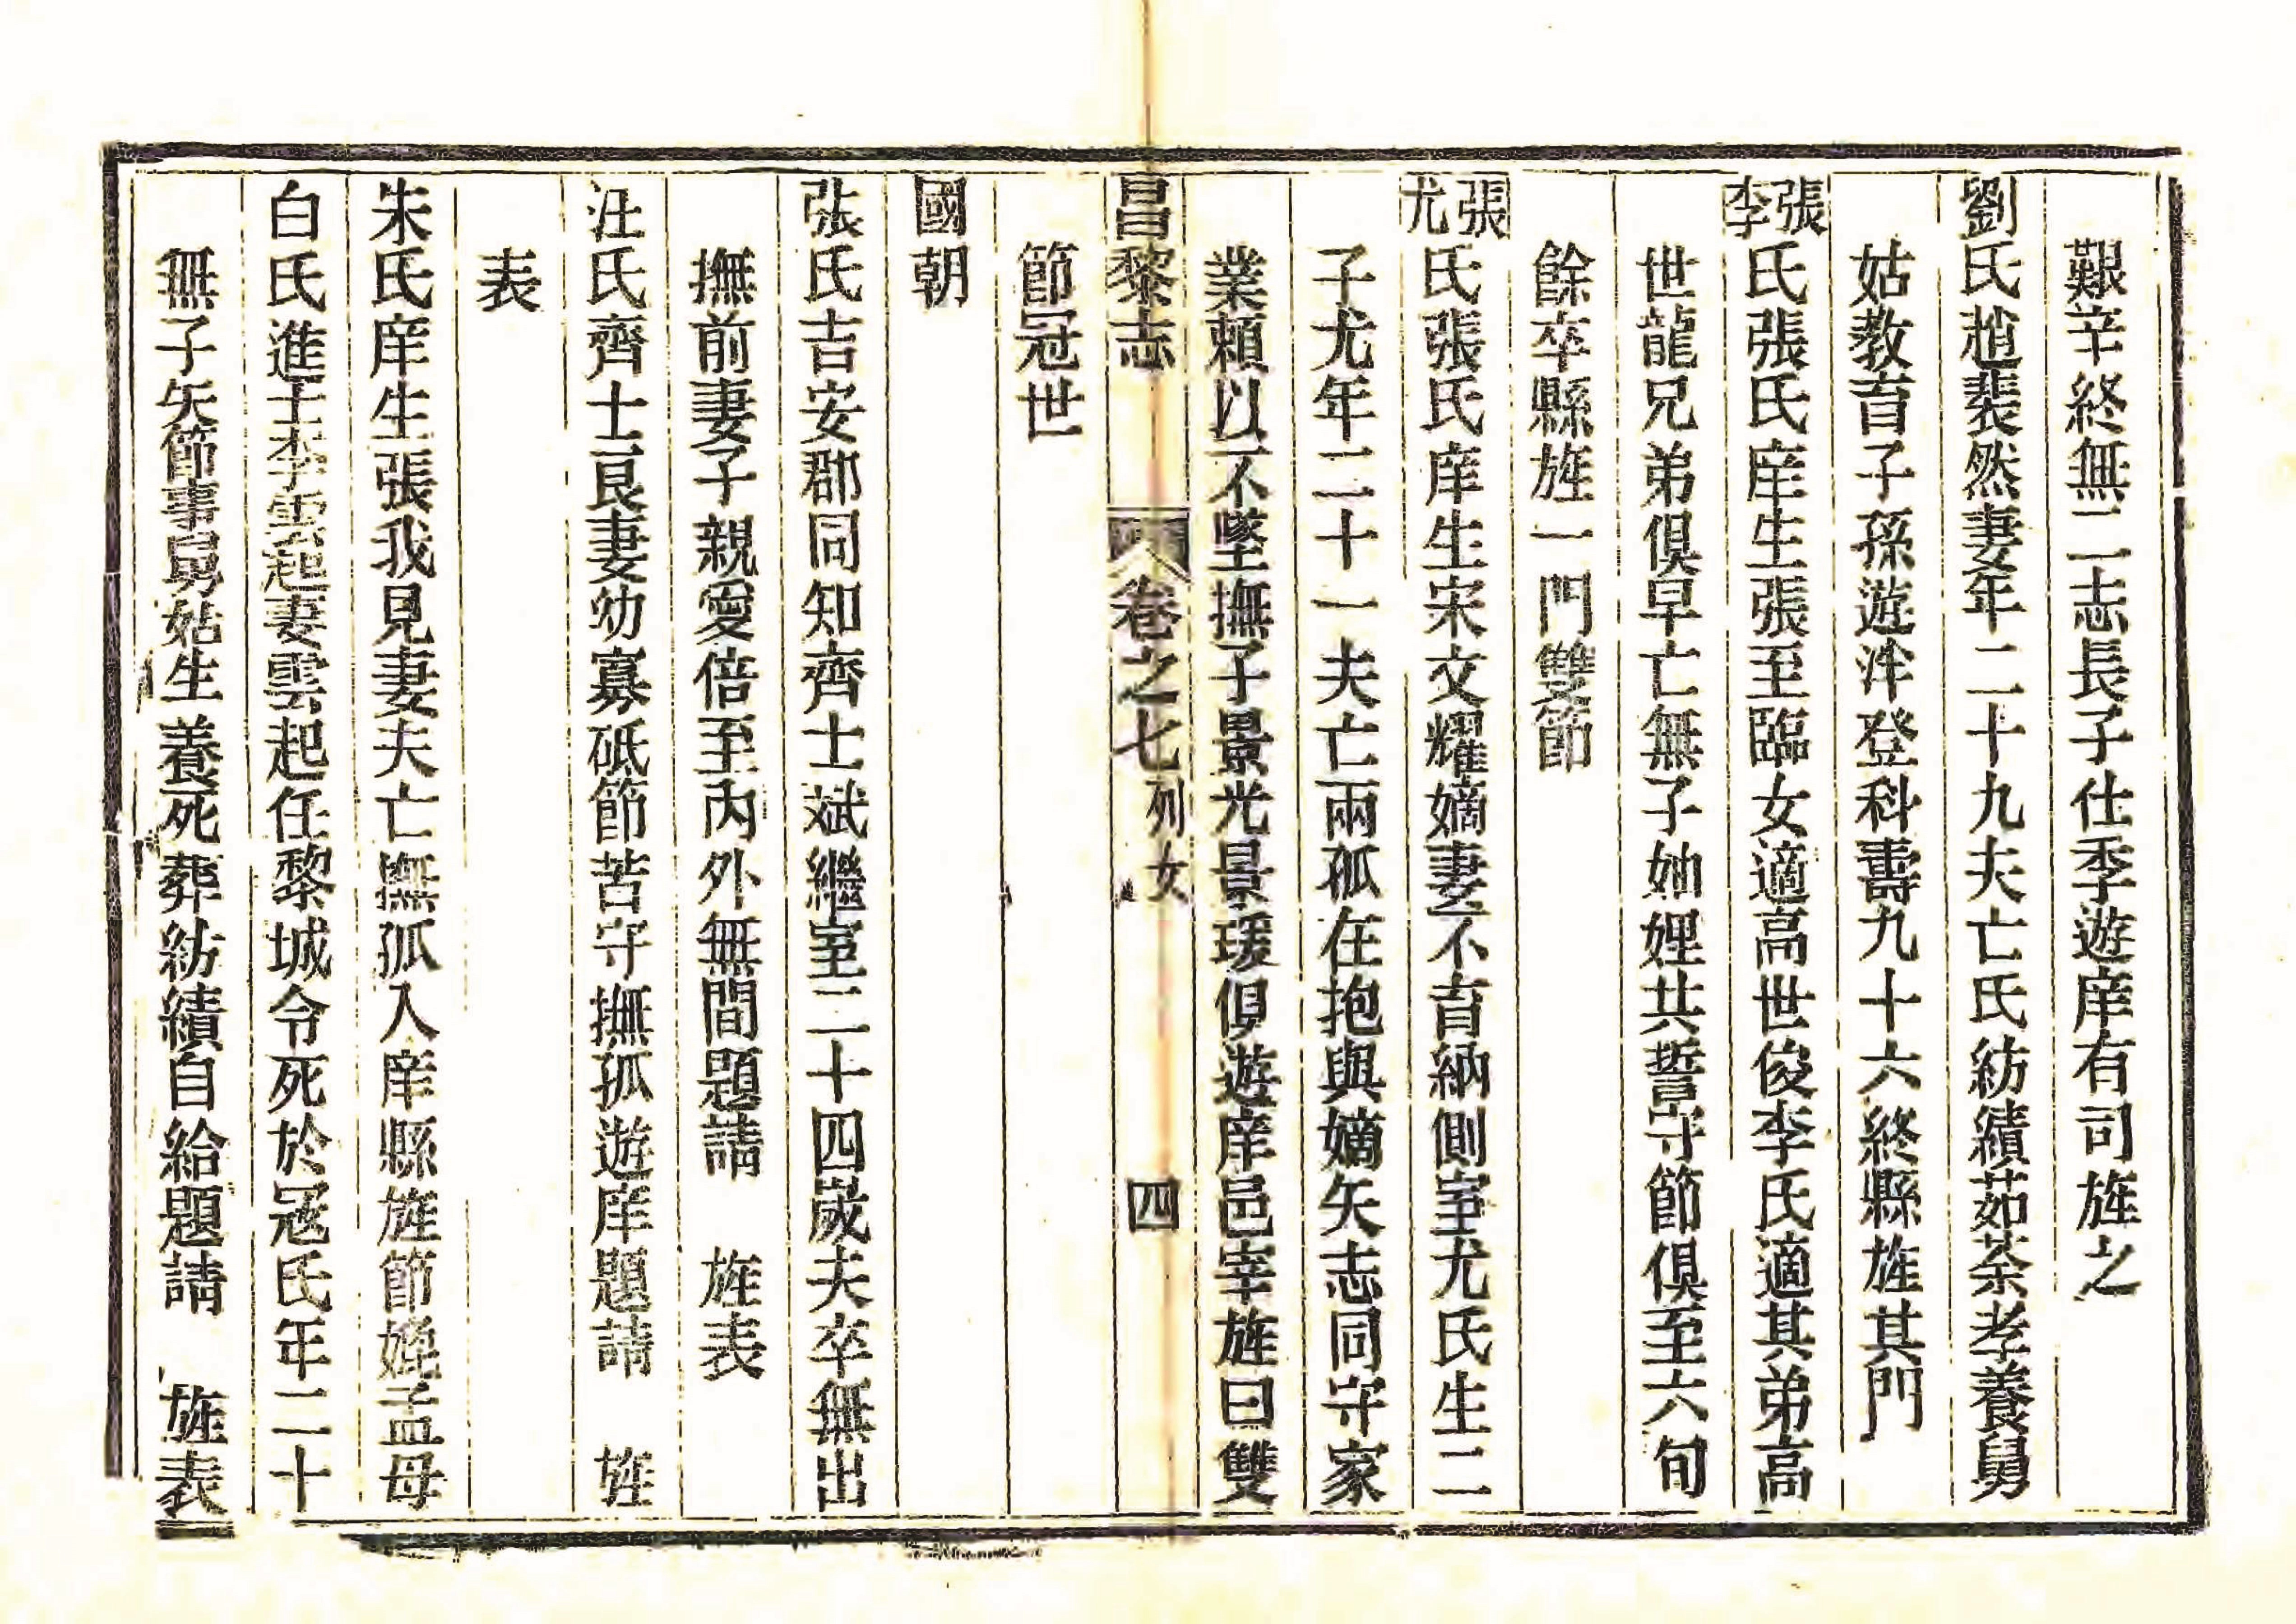 艱辛終無二志長子仕季遊庠有司旌之
劉氏趙裴然妻年二十九夫亡氏紡績茹茶孝養舅
姑教育子孫遊泮登科壽九十六終縣旌其門
張李氏張氏庠生張至臨女適高世俊李氏適其弟高
世龍兄弟俱早亡無子妯娌共誓守節俱至六旬
餘卒縣旌一門雙節
張尤氏張氏庠生宋文耀嫡妻不育納側室尤氏生二
子尤年二十一夫亡兩孤在抱與嫡矢志同守家
業賴以不墜撫子景光景瑗俱遊庠邑宰旌曰雙
昌黎志 卷之七 列女 四
節冠世
國朝
張氏吉安郡同知齊士斌繼室二十四歲夫卒無出
撫前妻子親愛倍至內外無間題請 旌表
汪氏齊士良妻幼寡砥節苦守撫孤遊庠題請 旌
表
朱氏庠生張我見妻夫亡撫孤入庠縣旌節媲孟母
白氏進士李雲起妻雲起任黎城令死於寇氏年二十
無子矢節事舅姑生養死葬紡績自給題請 旌表